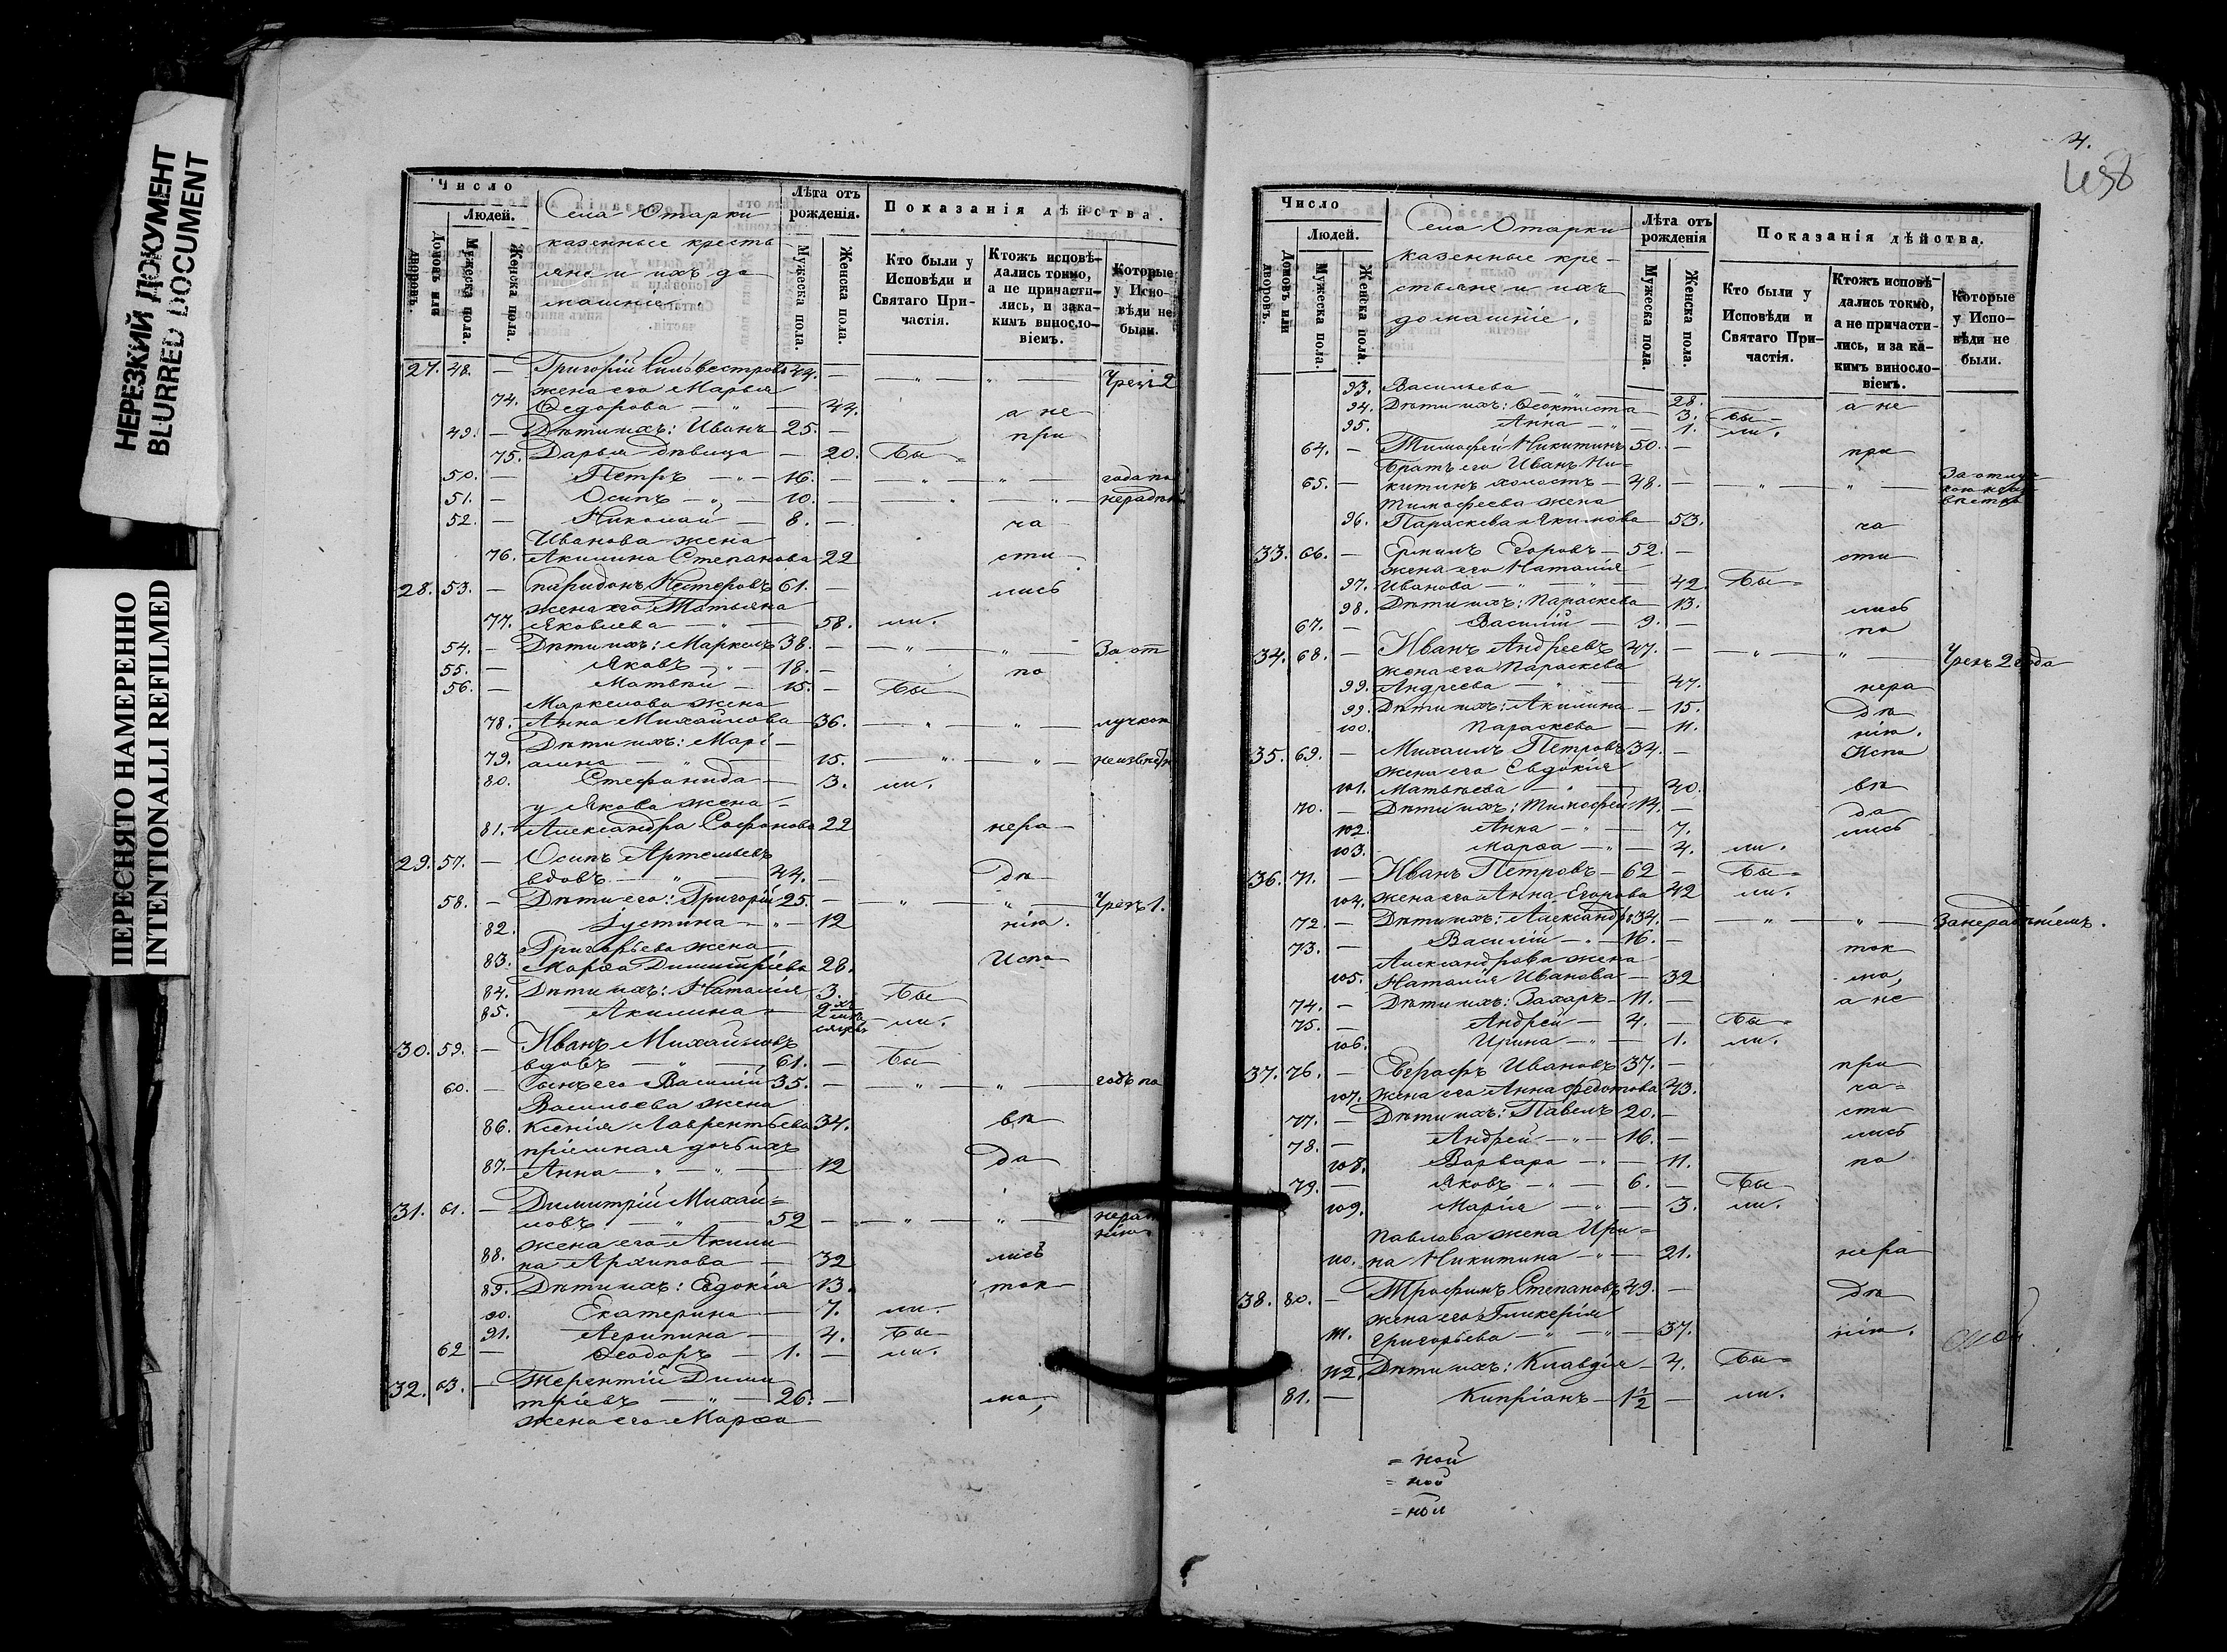 НЕРЕЗКИЙ ДОКУМЕНТ
BLURRED DOCUMENT
ПЕРЕСНЯТО НАМЕРЕННО
INTENTIONALLI REFILMED
Число
Людей.
Домовъ или дворовъ.
Мужеска пола.
Женска пола.
Села Отарки
казенные кресть
яне и ихъ до
машніе.
Лѣта отъ рожденія.
Мужеска пола.
Женска пола.
Показанія дѣйства.
Кто были у Исповѣди и Святаго Причастія.
Ктожъ исповѣдались токмо, а не причастились, и за какимъ винословіемъ.
Которые у Исповѣди не были.
27. 48. — Григорій Сильвестровъ 44. — Чрезъ 2
жена его Марья
74. Ѳедорова — 44. а не
49. — Дѣти ихъ: Иванъ — 25. — при
75. Дарья дѣвица — 20. Бы
50. — Петръ — 16. — года по
51. — Осипъ — 10. —
52. — Николай — 8. — ча
Иванова жена
76. Акилина Степанова 22 сти
28. 53. — Нестеровъ 61. — лись
жена его Татьяна
77. Яковлева — 58. ли.
54. — Дѣти ихъ: Маркелъ 38. — За от
55. — Яковъ — 18. — по
56. — Матвѣй — 15. — Бы
Маркелова жена
78. Анна Михайлова — 36. лучкою
Дѣти ихъ: Марі
79. амна — 15.
80. Стефанида — 3. ли.
у Якова жена
81. Александра Софонова 22 нера
29. 57. — Осипъ Артемьевъ
вдовъ — 44. — дѣ
58. — Дѣти его: Григорій 25. — Чрезъ 1.
82. Іустина — 12 нію.
Григорьева жена
83. Марѳа Димитріева 28. Испо
84. Дѣти ихъ: Наталія 3. Бы
85. Акилина — 2 ли.
30. 59. — Иванъ Михайловъ
вдовъ — 61. — Бы
60. — Сынъ его Василій 35. — годъ по
Васильева жена
86. Ксенія Лаврентьева 34. вѣ
пріемная дочь ихъ
87. Анна — 12 да
31. 61. — Димитрій Михай=
ловъ — 52 —
жена его Акили
88. на Архипова — 32 лись
89. Дѣти ихъ: Евдокія 13. ток
90. Екатерина — 7. ли.
91. Агрипина — 4. Бы
62 — Ѳеодоръ — 1. — ли.
32. 63. — Терентій Дими
тріевъ — 26. — мо,
жена его Марѳа
4.
458
Число
Людей.
Домовъ или дворовъ.
Мужеска пола.
Женска пола.
Села Отарки
казенные кре-
стьяне и ихъ
домашніе.
Лѣта отъ рожденія
Мужеска пола.
Женска пола.
Показанія дѣйства.
Кто были у Исповѣди и Святаго Причастія.
Ктожъ исповѣдались токмо, а не причастились, и за какимъ винословіемъ.
Которые у Исповѣди не были.
93. Васильева — 28. а не
94. Дѣти ихъ: Ѳеоктиста — 3. Бы
95. Анна — 1. ли.
64. — Тимофей Никитинъ 50. — при
Братъ его Иванъ Ни-
65. — китинъ холостъ — 48. —
Тимофеева жена
96. Параскева Якимова 53. ча
33. 66. — Егоровъ — 52. — сти
жена его Наталія
97. Иванова — 42 Бы=
98. Дѣти ихъ: Параскева 13. лись
67. — Василій — 9. — по
34. 68. — Иванъ Андреевъ 47. — Чрезъ 2 года
жена его Параскева
99. Андреева — 47. нера
99. Дѣти ихъ: Акилина — 15. дѣ
100. Параскева — 11. нію.
35. 69. — Михаилъ Петровъ 34. — Испо
жена его Евдокія
101. Матвѣева — 40. вѣ
70. — Дѣти ихъ: Тимофей 14. — да
102. Анна — 7. лись
103. Марѳа — 4. ли.
36. 71. — Иванъ Петровъ — 62 — Бы=
104. жена его Анна Егорова 42 ли.
72. — Дѣти ихъ: Александръ 34. — За нерадѣніемъ.
73. — Василій — 16. — ток
Александрова жена
105. Наталія Иванова — 32 мо,
74. — Дѣти ихъ: Захаръ — 11. — а не
75. — Андрей — 4. — Бы=
106. Ирина — 1. ли.
37. 76. — Евграфъ Ивановъ 37. — при
107. жена его Анна Федотова 43. ча=
77. — Дѣти ихъ: Павелъ 20. — сти
78. — Андрей — 16. — лись
108. Варвара — 11. по
79. — Яковъ — 6. — Бы
109. Марія — 3. ли.
Павлова жена Ири=
110. на Никитина — 21. нера
38. 80. — Трофимъ Степановъ 49. — дѣ
жена его Гликерія
111. Григорьева — 37. нію.
112. Дѣти ихъ: Клавдія — 4. Бы=
81. — Кипріанъ — 1 1/2 — ли.
= ной
= ной
= ной